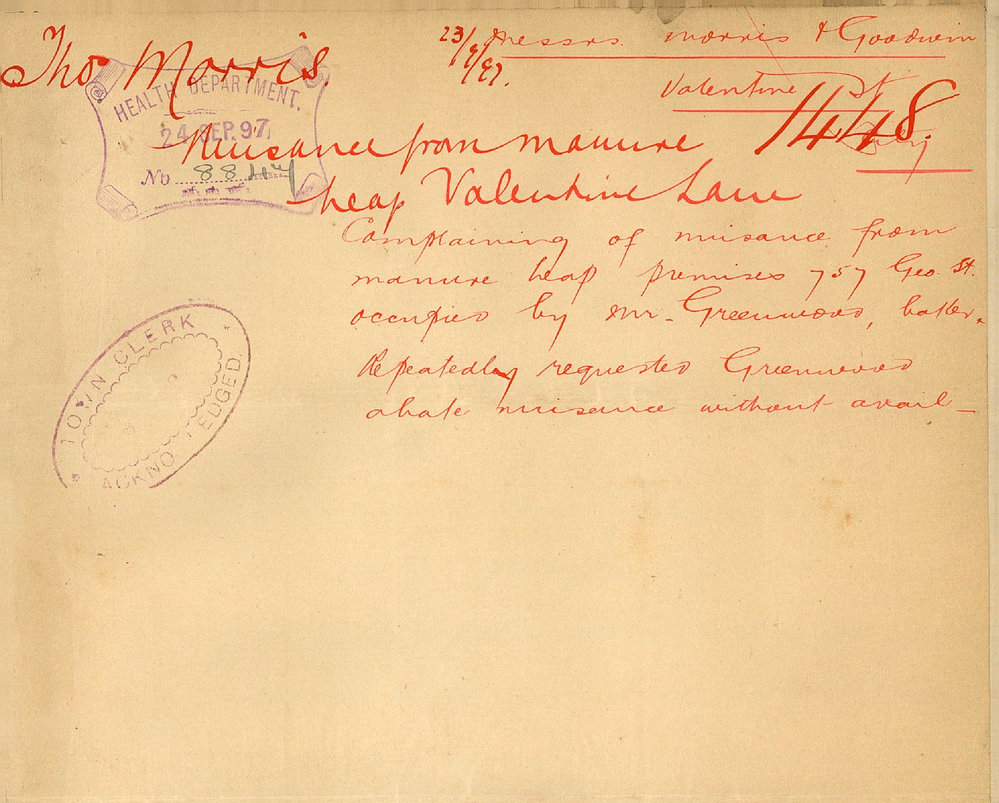 Tho Morris
23/9/97.
Messrs. Morris & Goodwin
Valentine St
1448.
HEALTH DEPARTMENT.
24 SEP. 97
No 8847
Nuisance from manure
heap Valentine Lane
Complaining of nuisance from
manure heap premises 757 Geo. St.
occupied by Mr. Greenwood, baker.
Repeatedly requested Greenwood
abate nuisance without avail
TOWN CLERK
ACKNO LEDGED